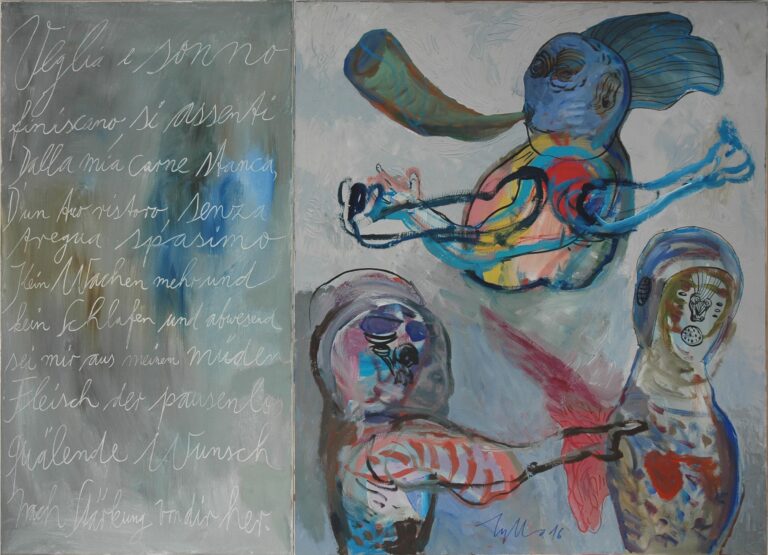 Veglia e sonno
finiscano si assenti
Dalla mia carne stanca,
D'un tuo ristoro, senza
tregua spasimo
Kein Wachen mehr und
kein Schlafen und abwesend
sei mir aus meinem müden
Fleisch der pausenlos
quälende Wunsch
nach Stärkung von dir her.
16